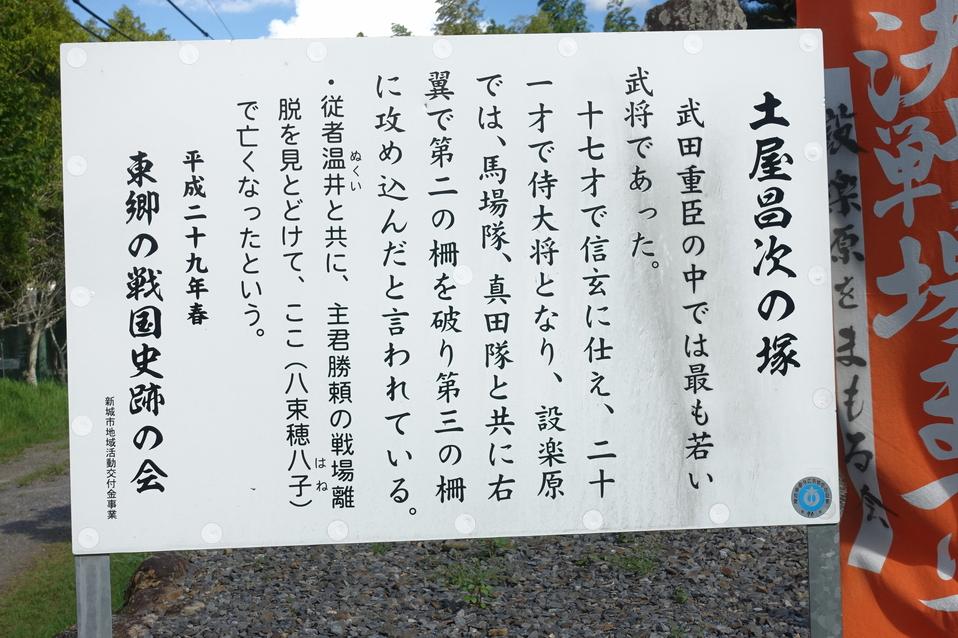 土屋昌次の塚
武田重臣の中では最も若い
武将であった。
十七才で信玄に仕え、二十
一才で侍大将となり、設楽原
では、馬場隊、真田隊と共に右
翼で第二の柵を破り第三の柵
に攻め込んだと言われている。
・従者温井と共に、主君勝頼の戦場離
ぬくい
脱を見とどけて、ここ（八束穂八子）
はね
で亡くなったという。
平成二十九年春
東郷の戦国史跡の会
新城市地域活動交付金事業
設楽原をまもる会
決戦場まつ